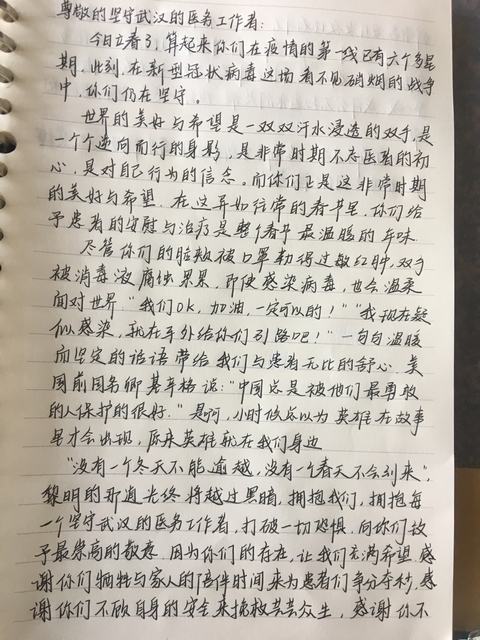 尊敬的坚守武汉的医务工作者:
今日立春了,算起来你们在疫情的第一线已有六个多星
期.此刻,在新型冠状病毒这场看不见硝烟的战争
中,你们仍在坚守。
世界的美好与希望是一双双汗水浸透的双手,是
一个个逆向而行的身影,是非常时期不忘医者的初
心,是对自己行为的信念。而你们正是这非常时期
的美好与希望.在这异如往常的春节里,你们给
予患者的安慰与治疗是整个春节最温暖的年味.
尽管你们的脸颊被口罩勒得过敏红肿,双手
被消毒液腐蚀累累,即使感染病毒,也会温柔
面对世界"我们OK,加油,一定可以的!""我现在疑
似感染,就在车外给你们引路吧!"一句句温暖
而坚定的话语带给我们与患者无比的舒心.美
国前国务卿基辛格说:"中国总是被他们最勇敢
的人保护的很好."是啊,小时候总以为英雄在故事
里才会出现,原来英雄就在我们身边
"没有一个冬天不能逾越,没有一个春天不会到来",
黎明的那道光终将越过黑暗,拥抱我们,拥抱每
一个坚守武汉的医务工作者,打破一切恐惧.向你们致
予最崇高的敬意.因为你们的存在,让我们充满希望.感
谢你们牺牲与家人的陪伴时间来为患者们争分夺秒,感
谢你们不顾自身的安全来挽救芸芸众生,感谢你不